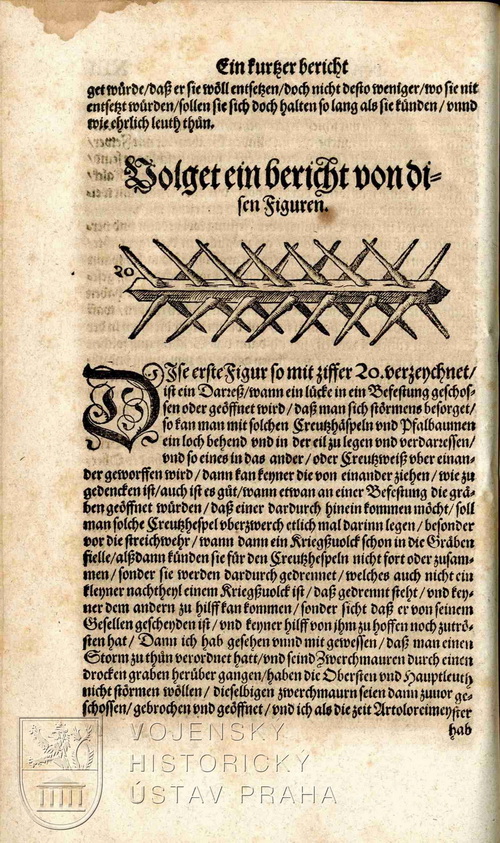 Ein kurtzer bericht
get würde/daß er sie wöll entsetzen/doch nicht desto weniger/wo sie nit
entsetzt würden/sollen sie sich doch halten so lang als sie künden/vnnd
wie ehrlich leuth thün.
Volget ein bericht von di-
sen Figuren.
20
DIse erste Figur so mit ziffer 20. verzeychnet/
ist ein Darreß/wann ein lücke in ein Befestung geschos-
sen oder geöffnet wird/daß man sich störmens besorget/
so kan man mit solchen Creutzhäspeln vnd Pfalbaumen
ein loch behend vnd in der eil zu legen vnd verdarressen/
vnd so eines in das ander/oder Creutzweiß vber einan-
der geworffen wird/dann kan keyner die von einander ziehen/wie zu
gedencken ist/auch ist es güt/wann etwan an einer Befestung die grä-
ben geöffnet würden/daß einer dardurch hinein kommen möcht/soll
man solche Creutzhespel vberzwerch etlich mal darinn legen/besonder
vor die streichwehr/wann dann ein Kriegßuolck schon in die Gräben
fielle/alßdann künden sie für den Creutzhespeln nicht fort oder zusam-
men/sonder sie werden dardurch gedrennet/welches auch nicht ein
kleyner nachtheyl einem Kriegßuolck ist/daß gedrennt steht/vnd key-
ner dem andern zu hilff kan kommen/sonder sicht daß er von seinem
Gesellen gescheyden ist/vnd keyner hilff von jhm zu hoffen noch zuträ-
sten hat/Dann ich hab gesehen vnnd mit gewessen/daß man einen
Storm zu thün verordnet hatt/vnd seind Zwerchmauren durch einen
drocken graben herüber gangen/haben die Obersten vnd Hauptleuth
nicht störmen wöllen/dieselbigen zwerchmaurn seien dann zuuor ge-
schossen/gebrochen vnd geöffnet/vnd ich als die zeit Artoloreimeyster
hab
VOJENSKÝ
HISTORICKÝ
ÚSTAV PRAHA